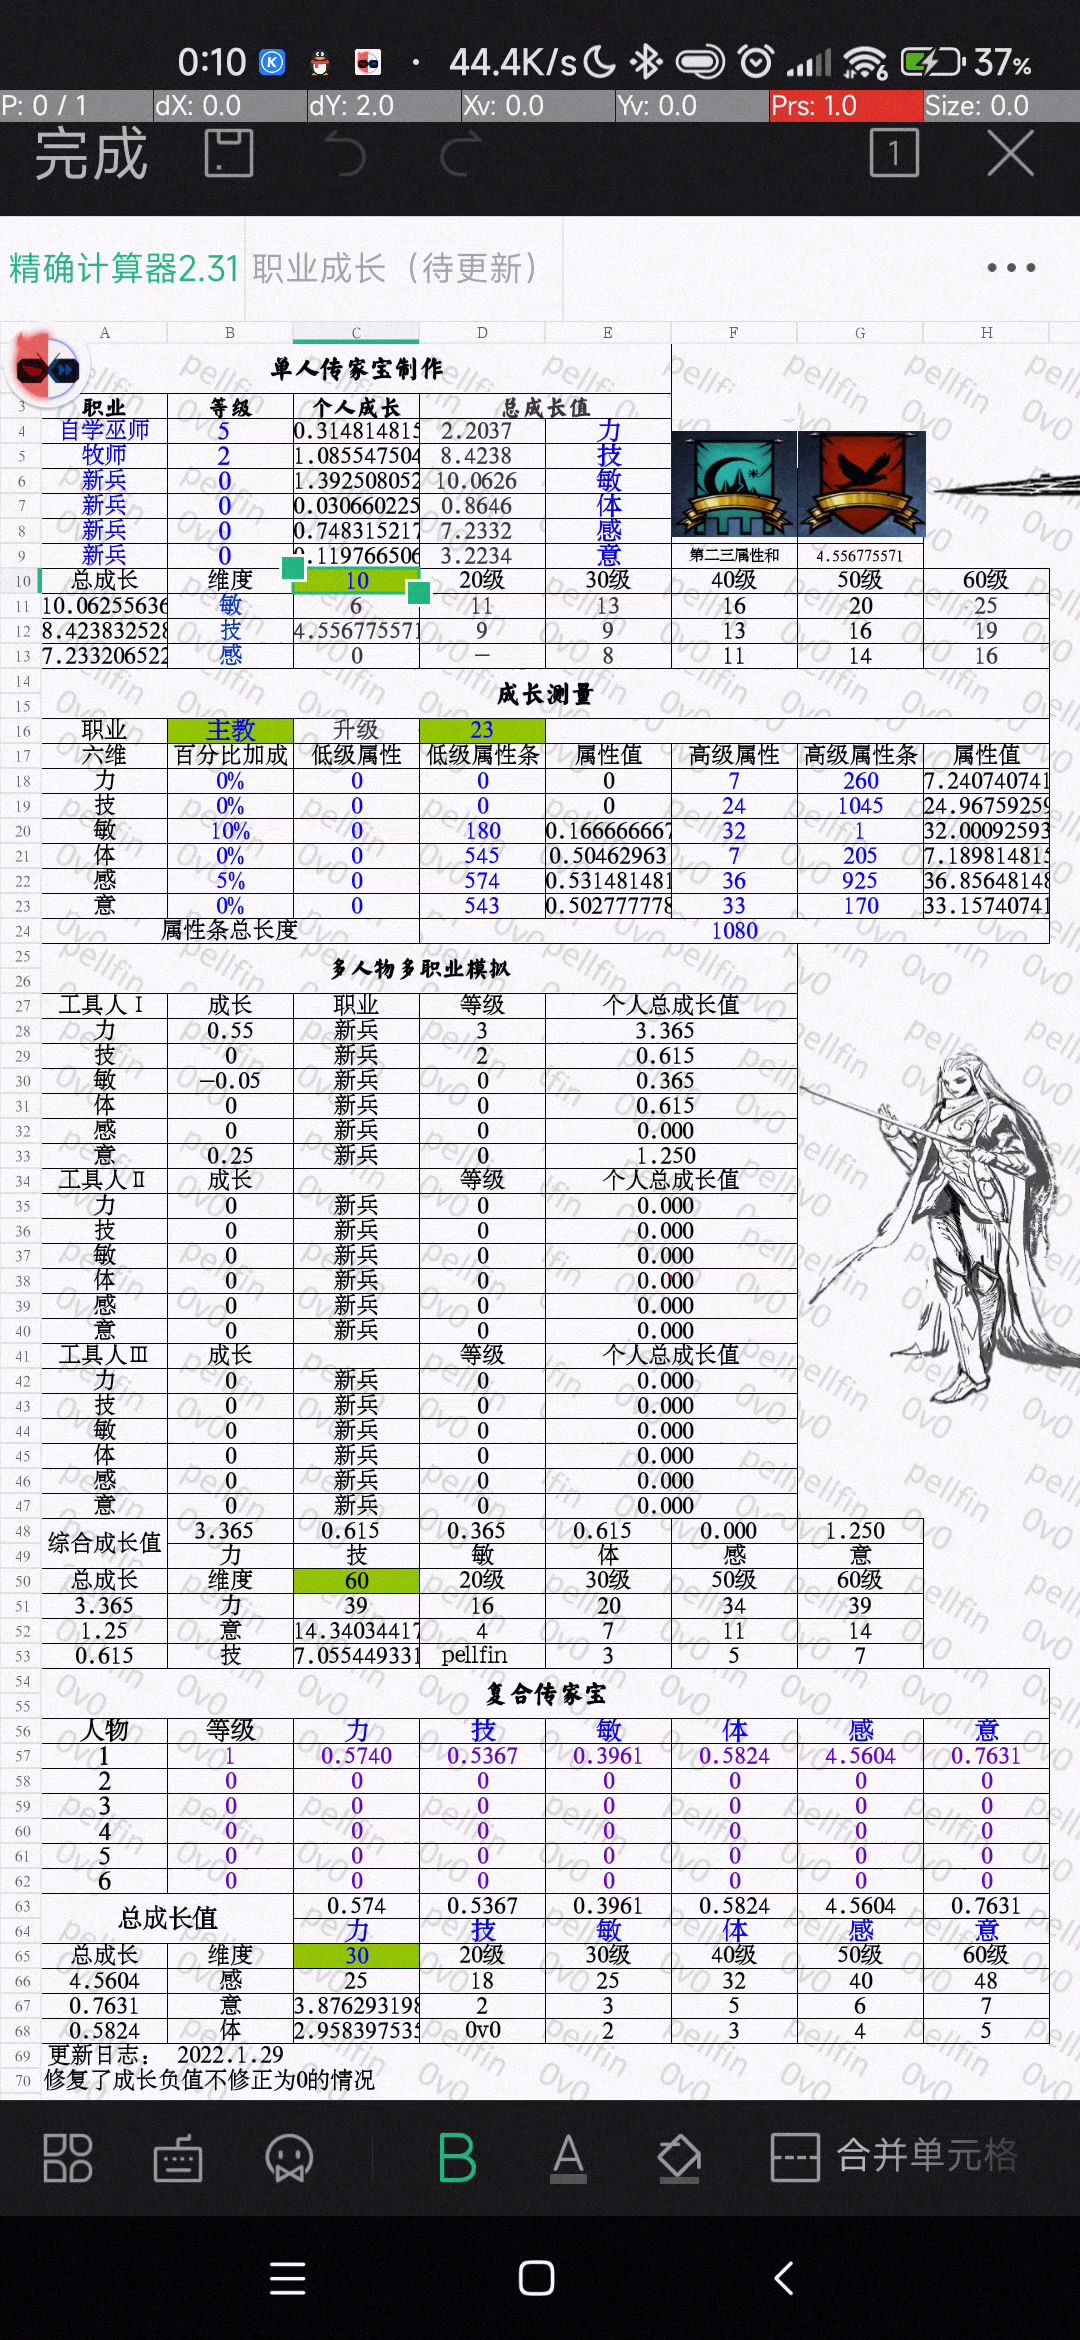 0:10 44.4K/s 6 37%
P: 0 / 1 dX: 0.0 dY: 2.0 Xv: 0.0 Yv: 0.0 Prs: 1.0 Size: 0.0
完成 1
精确计算器2.31 职业成长（待更新）
A B C D E F G H
单人传家宝制作
3 职业 等级 个人成长 总成长值
4 自学巫师 5 0.314814815 2.2037 力
5 牧师 2 1.085547504 8.4238 技
6 新兵 0 1.392508052 10.0626 敏
7 新兵 0 0.030660225 0.8646 体
8 新兵 0 0.748315217 7.2332 感
9 新兵 0 0.119766506 3.2234 意 第二三属性和 4.556775571
10 总成长 维度 10 20级 30级 40级 50级 60级
11 10.06255636 敏 6 11 13 16 20 25
12 8.423832528 技 4.556775571 9 9 13 16 19
13 7.233206522 感 0 — 8 11 14 16
14
成长测量
15
16 职业 主教 升级 23
17 六维 百分比加成 低级属性 低级属性条 属性值 高级属性 高级属性条 属性值
18 力 0% 0 0 0 7 260 7.240740741
19 技 0% 0 0 0 24 1045 24.96759259
20 敏 10% 0 180 0.166666667 32 1 32.00092593
21 体 0% 0 545 0.50462963 7 205 7.189814815
22 感 5% 0 574 0.531481481 36 925 36.85648148
23 意 0% 0 543 0.502777778 33 170 33.15740741
24 属性条总长度 1080
25
多人物多职业模拟
26
27 工具人Ⅰ 成长 职业 等级 个人总成长值
28 力 0.55 新兵 3 3.365
29 技 0 新兵 2 0.615
30 敏 −0.05 新兵 0 0.365
31 体 0 新兵 0 0.615
32 感 0 新兵 0 0.000
33 意 0.25 新兵 0 1.250
34 工具人Ⅱ 成长 等级 个人总成长值
35 力 0 新兵 0 0.000
36 技 0 新兵 0 0.000
37 敏 0 新兵 0 0.000
38 体 0 新兵 0 0.000
39 感 0 新兵 0 0.000
40 意 0 新兵 0 0.000
41 工具人Ⅲ 成长 等级 个人总成长值
42 力 0 新兵 0 0.000
43 技 0 新兵 0 0.000
44 敏 0 新兵 0 0.000
45 体 0 新兵 0 0.000
46 感 0 新兵 0 0.000
47 意 0 新兵 0 0.000
48 3.365 0.615 0.365 0.615 0.000 1.250
综合成长值
49 力 技 敏 体 感 意
50 总成长 维度 60 20级 30级 50级 60级
51 3.365 力 39 16 20 34 39
52 1.25 意 14.34034417 4 7 11 14
53 0.615 技 7.055449331 pellfin 3 5 7
54
复合传家宝
55
56 人物 等级 力 技 敏 体 感 意
57 1 1 0.5740 0.5367 0.3961 0.5824 4.5604 0.7631
58 2 0 0 0 0 0 0 0
59 3 0 0 0 0 0 0 0
60 4 0 0 0 0 0 0 0
61 5 0 0 0 0 0 0 0
62 6 0 0 0 0 0 0 0
63 0.574 0.5367 0.3961 0.5824 4.5604 0.7631
总成长值
64 力 技 敏 体 感 意
65 总成长 维度 30 20级 30级 40级 50级 60级
66 4.5604 感 25 18 25 32 40 48
67 0.7631 意 3.876293198 2 3 5 6 7
68 0.5824 体 2.958397535 0v0 2 3 4 5
69 更新日志： 2022.1.29
70 修复了成长负值不修正为0的情况
B A 合并单元格